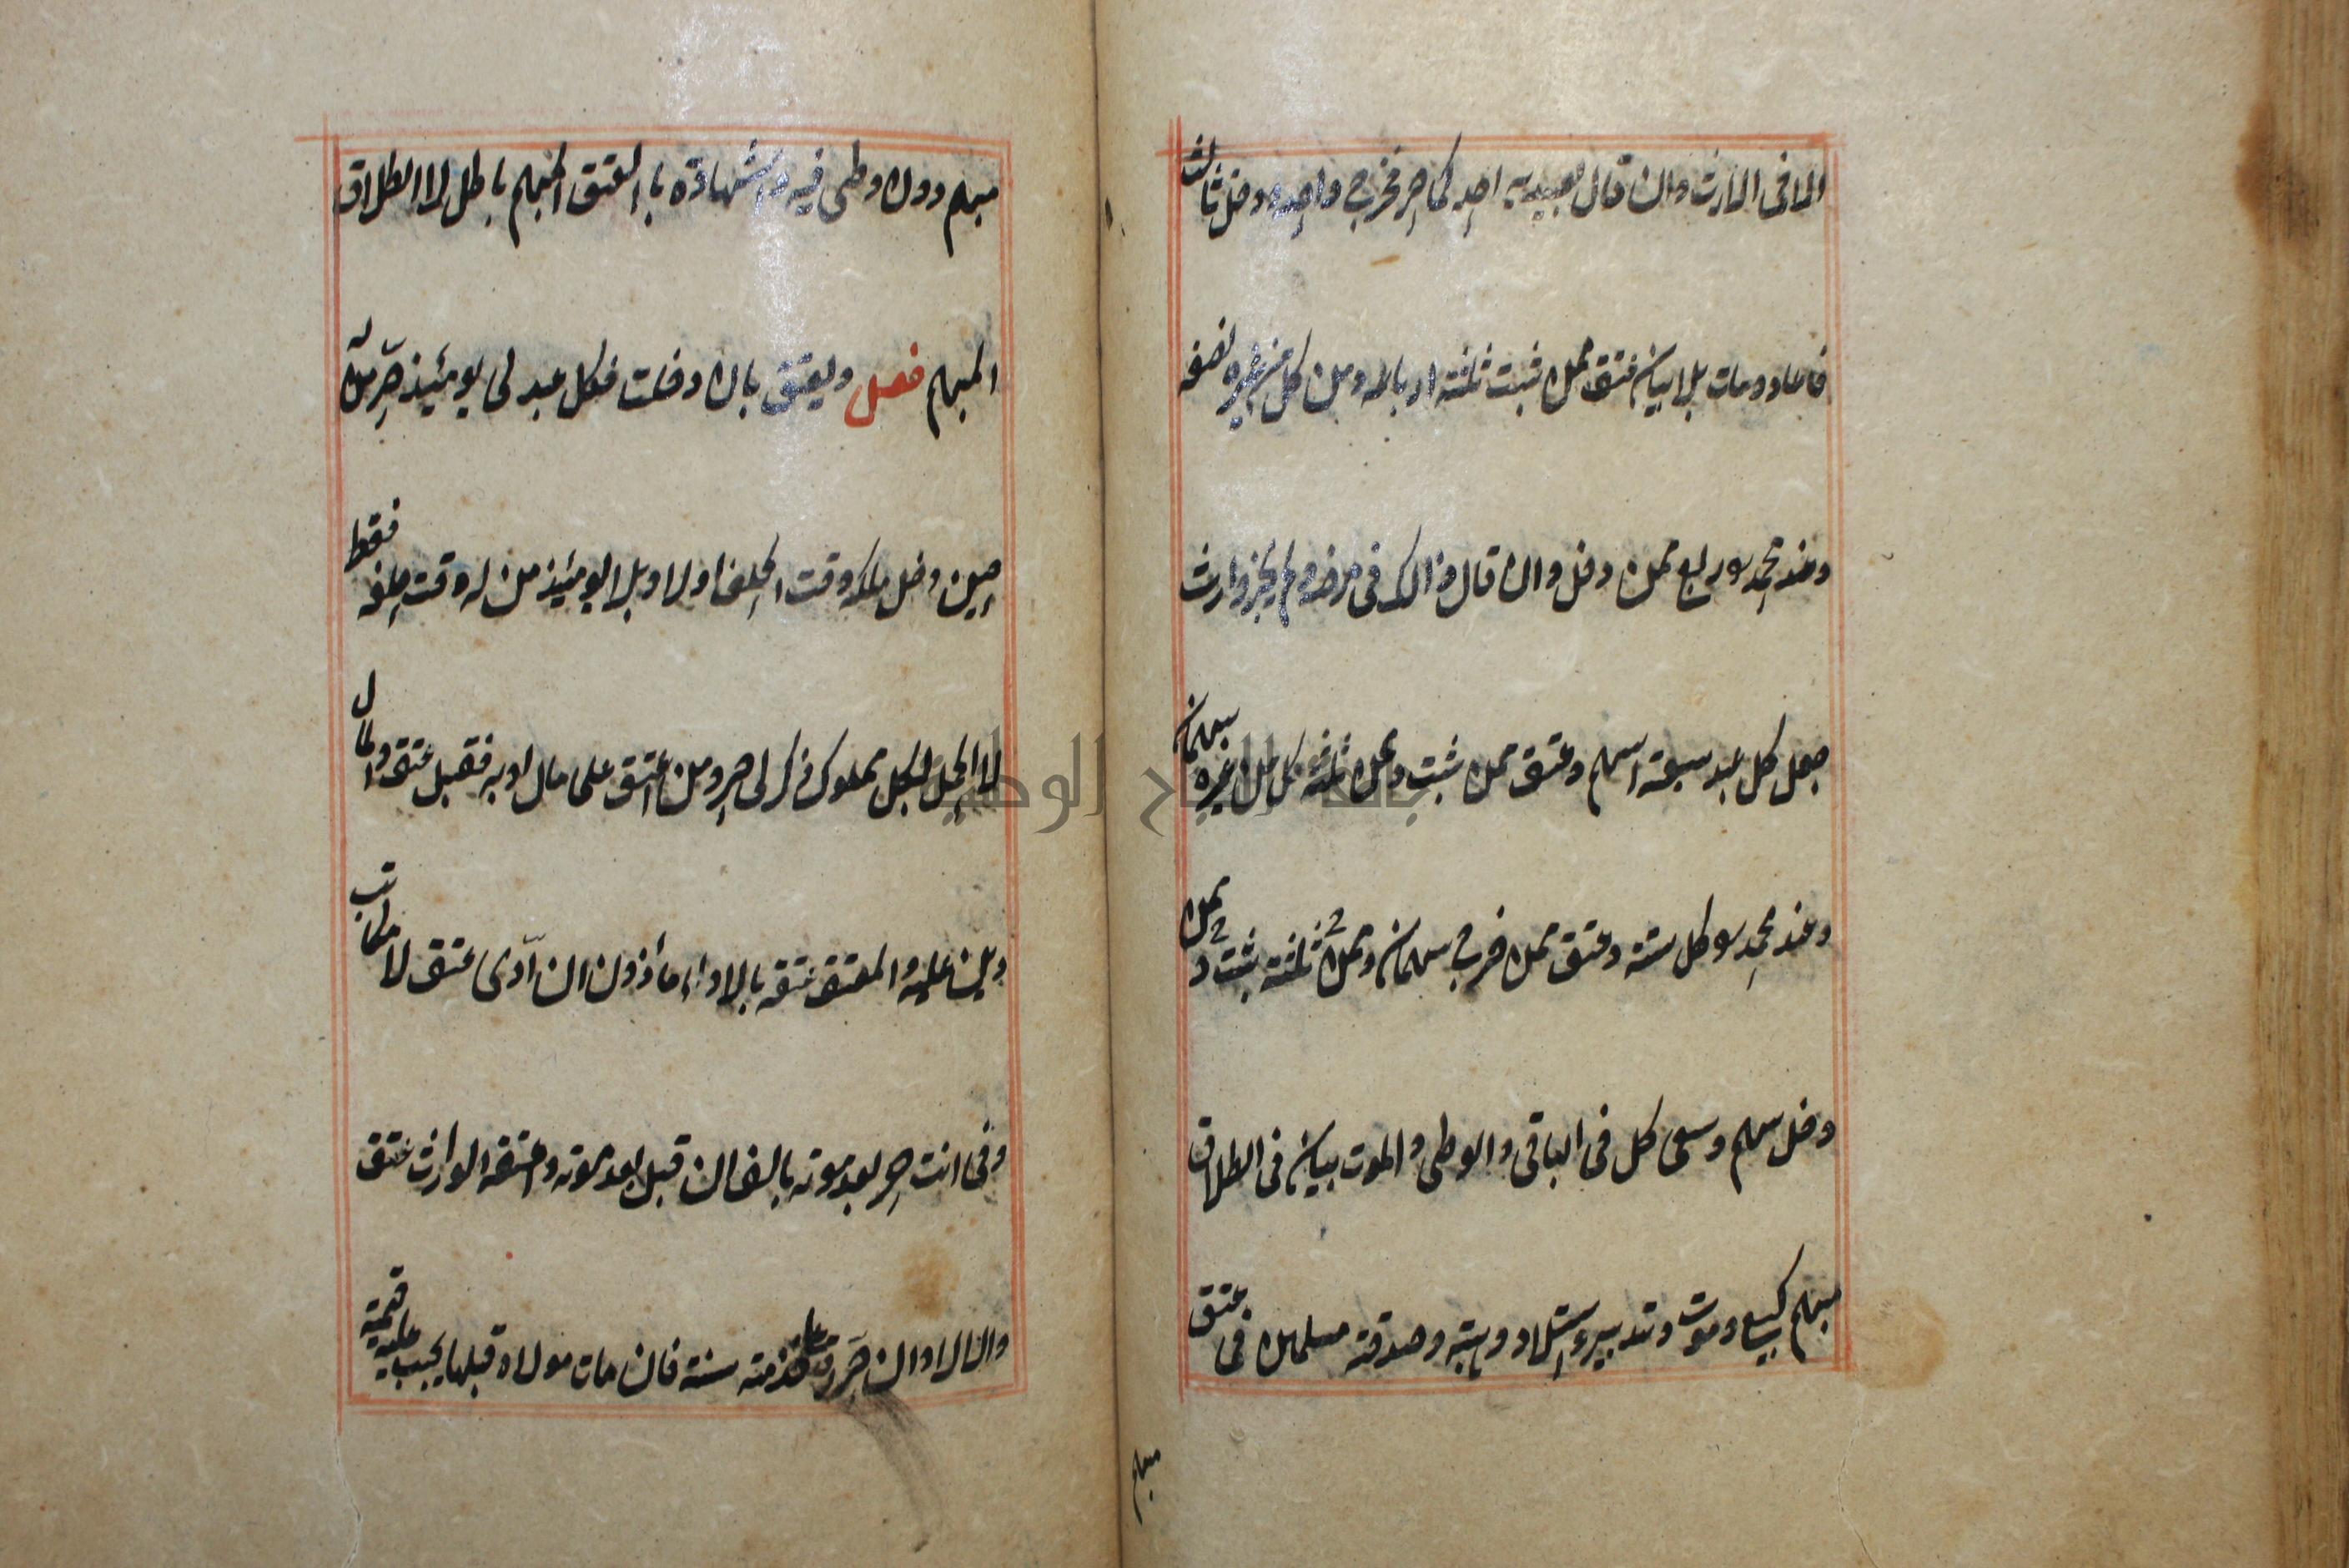 الا فى الارث وان قال لعبيده احدكما حر فخرج واحد ودخل ثالث
فاعاد ومات بلا بيان عتق ممن ثبت ثلثة ارباعه ومن كل من غيره نصفه
وعند محمد ربع ممن دخل وان قال ذالك فى مرضه ولم يجز وارث
جعل كل عبد سبعة اسهم وعتق ممن ثبت ثلثة ومن كل من غيره سهمان
وعند محمد كل ستة وعتق ممن خرج سهمان وممن ثبت ثلثة وممن
دخل سهم وسعى كل فى الباقى والوطى والموت بيان فى الطلاق
مبهم كبيع وموت وتدبير واستيلاد وهبة وصدقة مسلمين فى عتق
مبهم
مبهم دون وطى فيه والشهادة با العتق المبهم باطل لا الطلاق
المبهم فصل ويعتق بان دخلت فكل عبد لى يومئيذ حر من له
حين دخل ملكه وقت الحلف اولا وبلا يومئيذ من له وقت حلفه فقط
لا الحمل بكل مملوك ذكر لى حر ومن اعتق على مال او به فقبل عتق والمال
دين عليه والمعتق عتقه بالاداء مأذون ان ادى عتق لا مكاتب
وفى انت حر بعد موته بالف ان قبل بعد موته واعتقه الوارث عتق
والا لا وان حرره على خدمته سنة فان مات مولاه قبلها يجب عليه قيمته